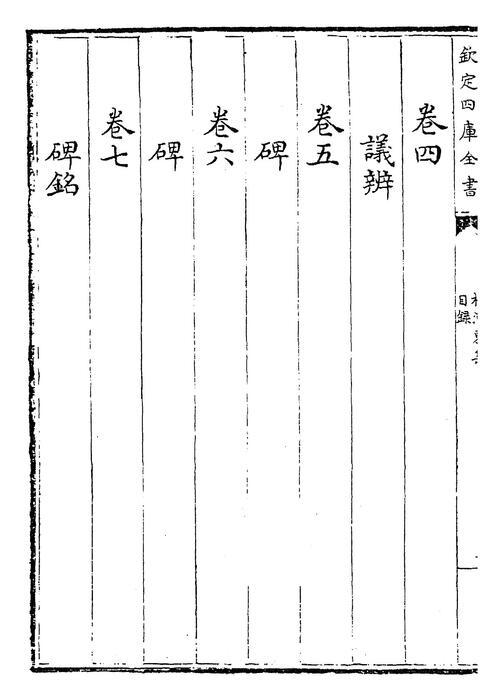 欽定四庫全書
目録
卷四
議辨
卷五
碑
卷六
碑
卷七
碑銘